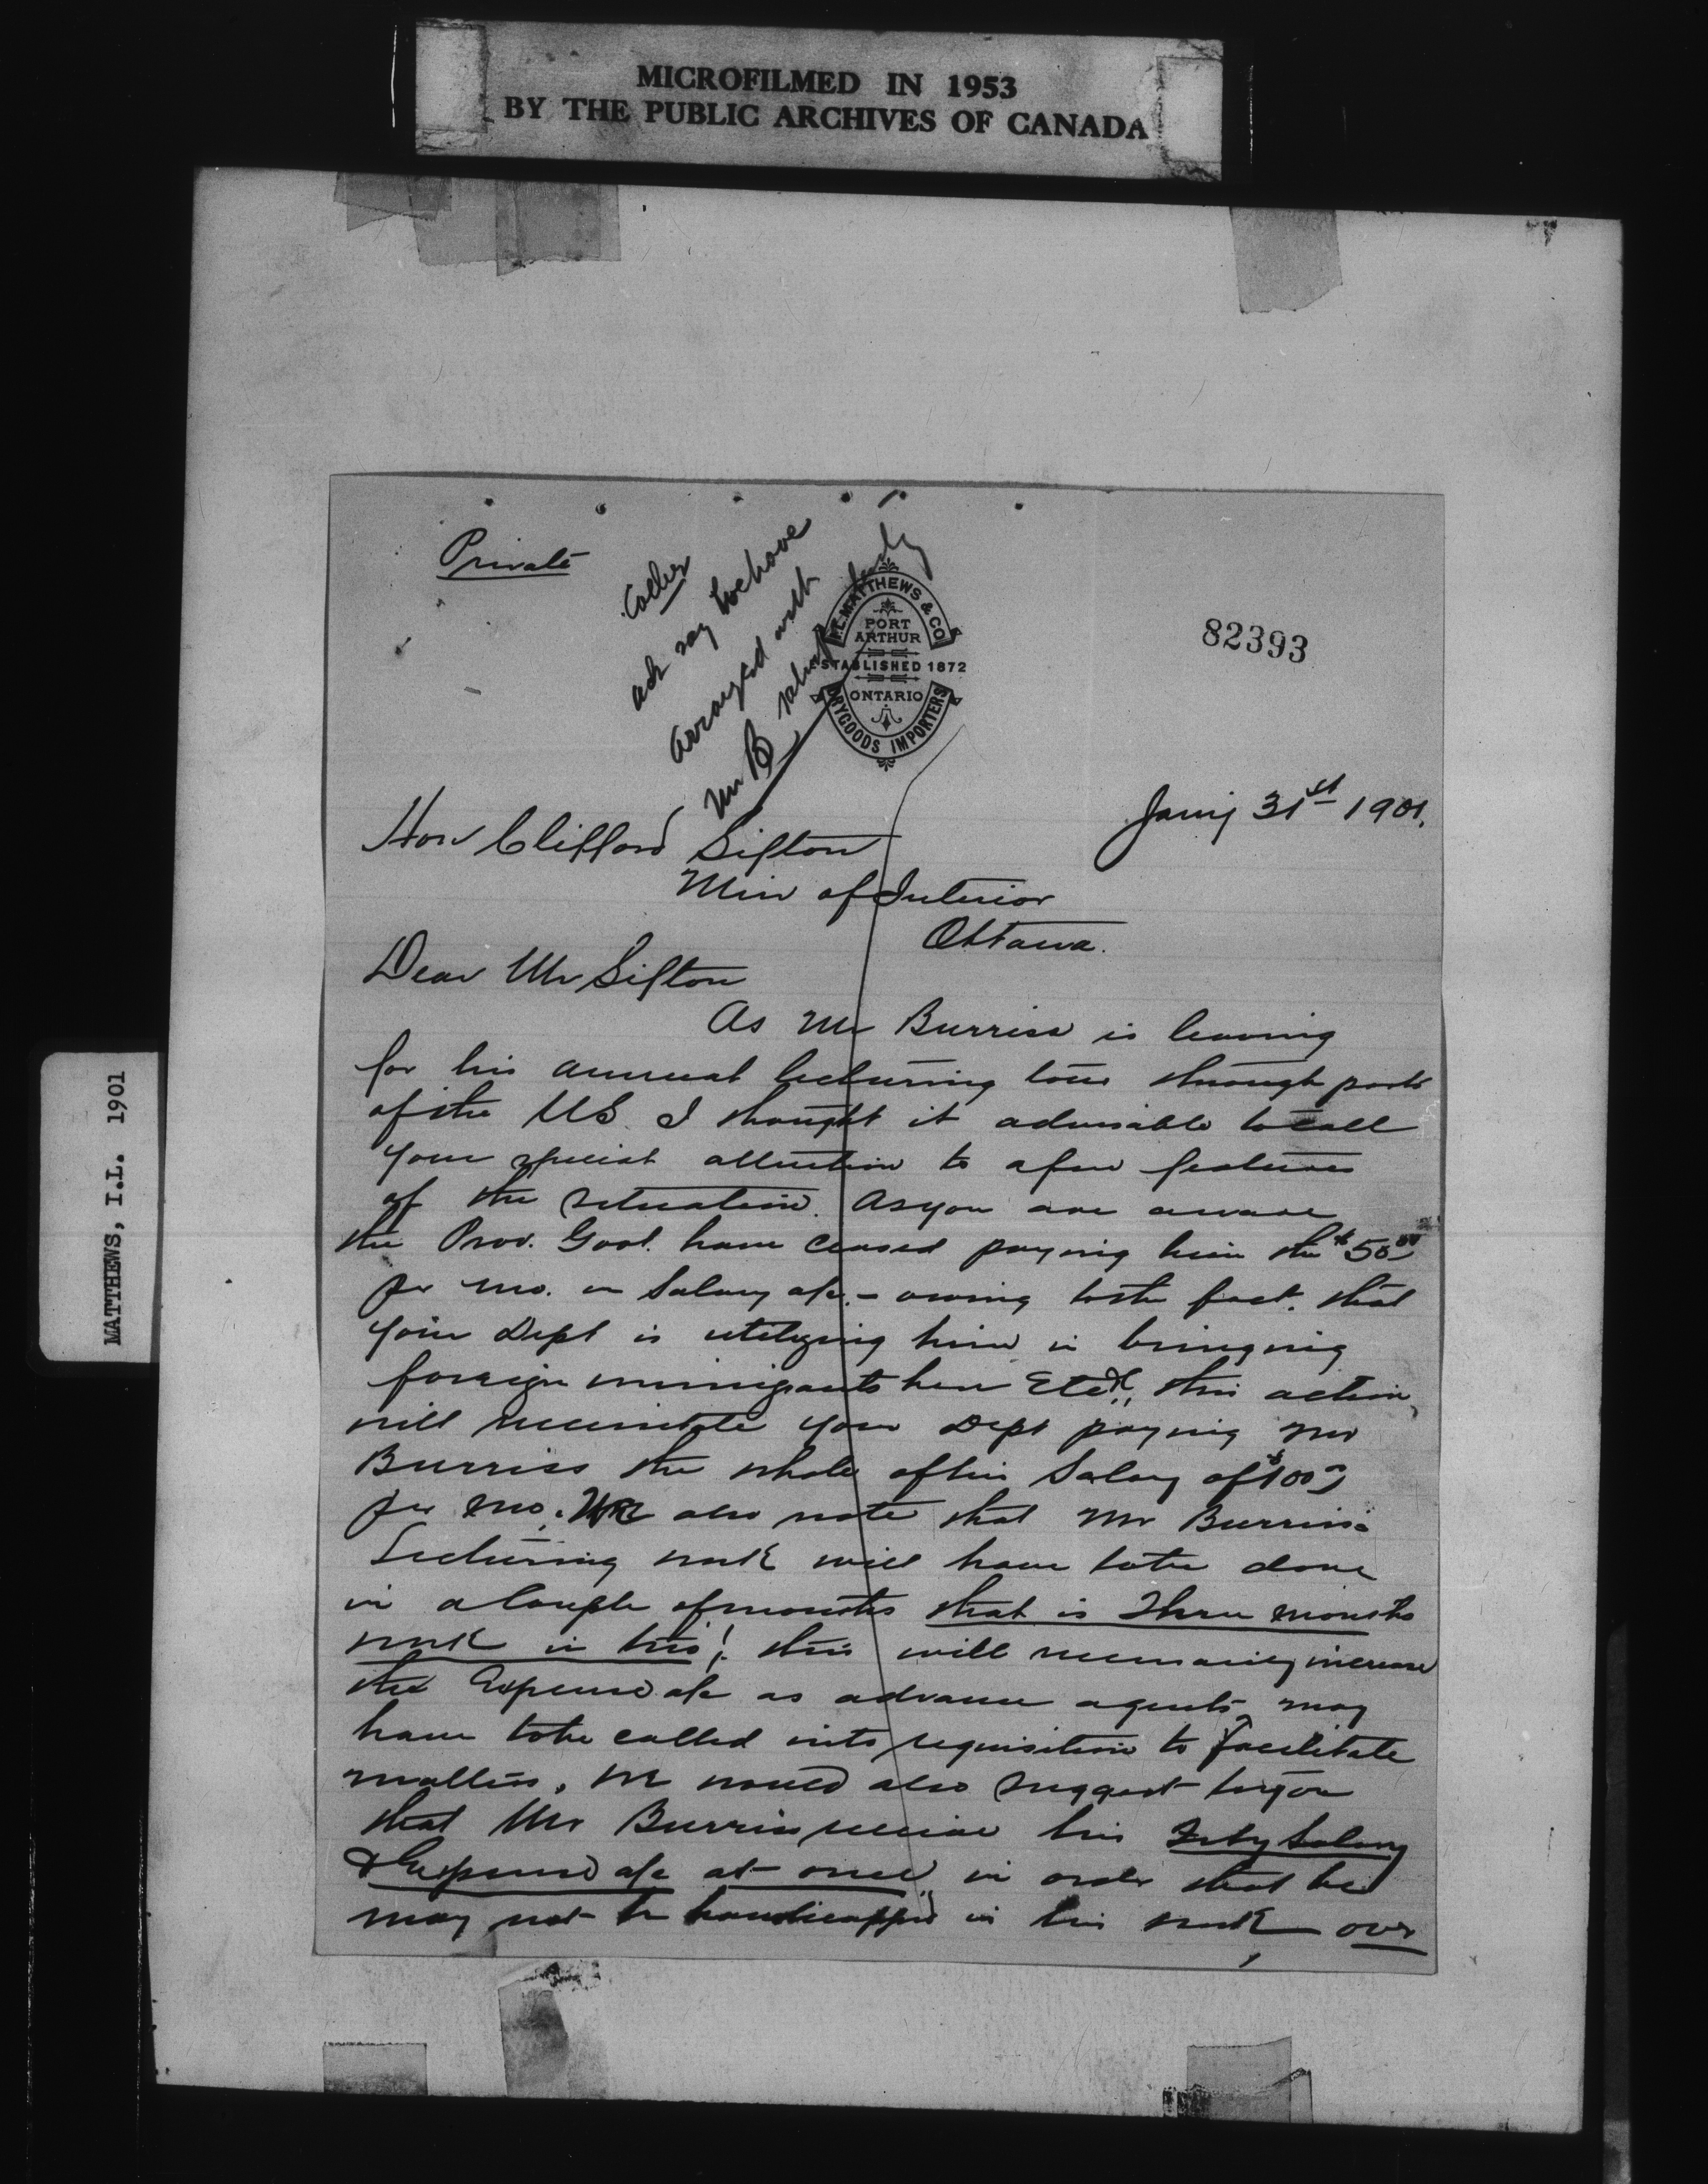 MICROFILMED IN 1953
BY THE PUBLIC ARCHIVES OF CANADA
MATTHEWS, I.L. 1901
Private
ack say we have
arranged with
Mr B satisfactorily
I.L. MATTHEWS & CO
PORT
ARTHUR
ESTABLISHED 1872
ONTARIO
DRYGOODS IMPORTERS
82393
Jany 31st 1901.
Hon Clifford Sifton
Min of Interior
Ottawa.
Dear Mr Sifton
As Mr Burriss is leaving
for his annual lecturing tour through parts
of the US. I thought it advisable to call
your special attention to a few features
of the situation. As you are aware
the Prov. Govt. have ceased paying him the $50.00
per mo. on Salary a/c - owing to the fact. that
your Dept is utilizing him in bringing
foreign immigrants here Etc, this action
will necessitate your Dept paying Mr
Burriss the whole of his Salary of $100
per mo. We also note that Mr Burriss
Lecturing work will have to be done
in a couple of months that is Three months
work in two! this will necessarily increase
the Expense a/c as advance agents may
have to be called into requisition to facilitate
matters. We would also suggest to you
that Mr Burriss receive his Feby Salary
& Expense a/c at once in order that he
may not be handicapped in his work over